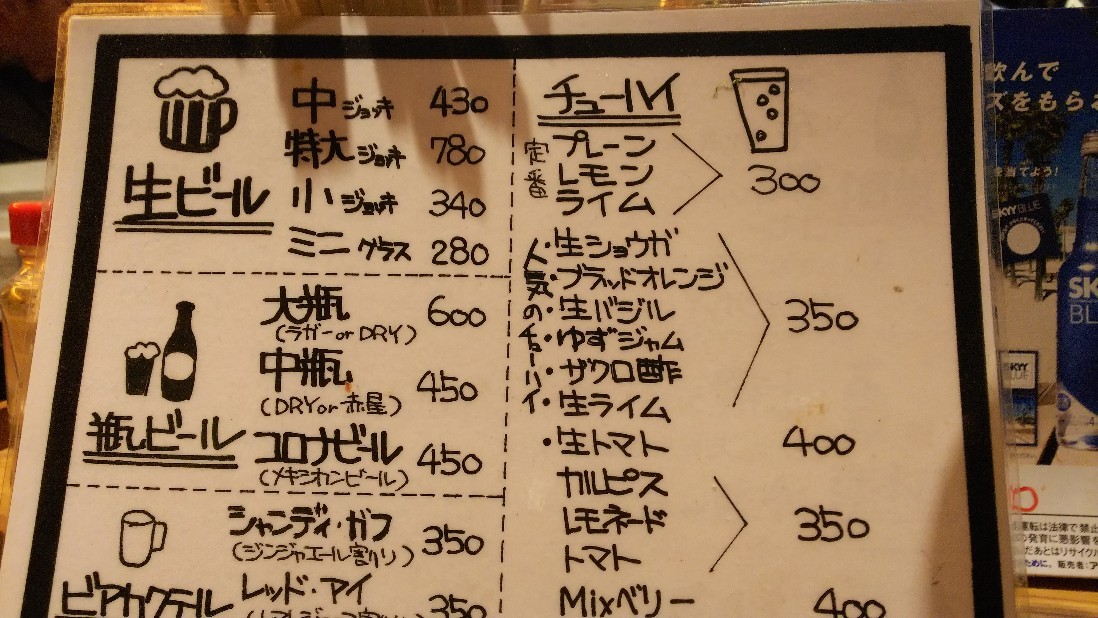 生ビール
中ジョッキ 430
特大ジョッキ 780
小ジョッキ 340
ミニグラス 280
瓶ビール
大瓶 600
(ラガーorDRY)
中瓶 450
(DRYor赤星)
コロナビール 450
(メキシカンビール)
ビアカクテル
シャンディ・ガフ 350
(ジンジャエール割り)
レッド・アイ 350
チューハイ
定番
プレーン
レモン
ライム
300
人気のチューハイ
・生ショウガ
・ブラッドオレンジ
・生バジル
・ゆずジャム
・ザクロ酢
・生ライム
350
・生トマト 400
カルピス
レモネード
トマト
350
Mixベリー 400
飲んで
ズをもらえ
を当てよう!
SKYY BLUE
SK
BL
SKYY
BLUE
運転は法律で禁止
の発育に悪影響を
だあとはリサイクル
ために。 販売者:ア